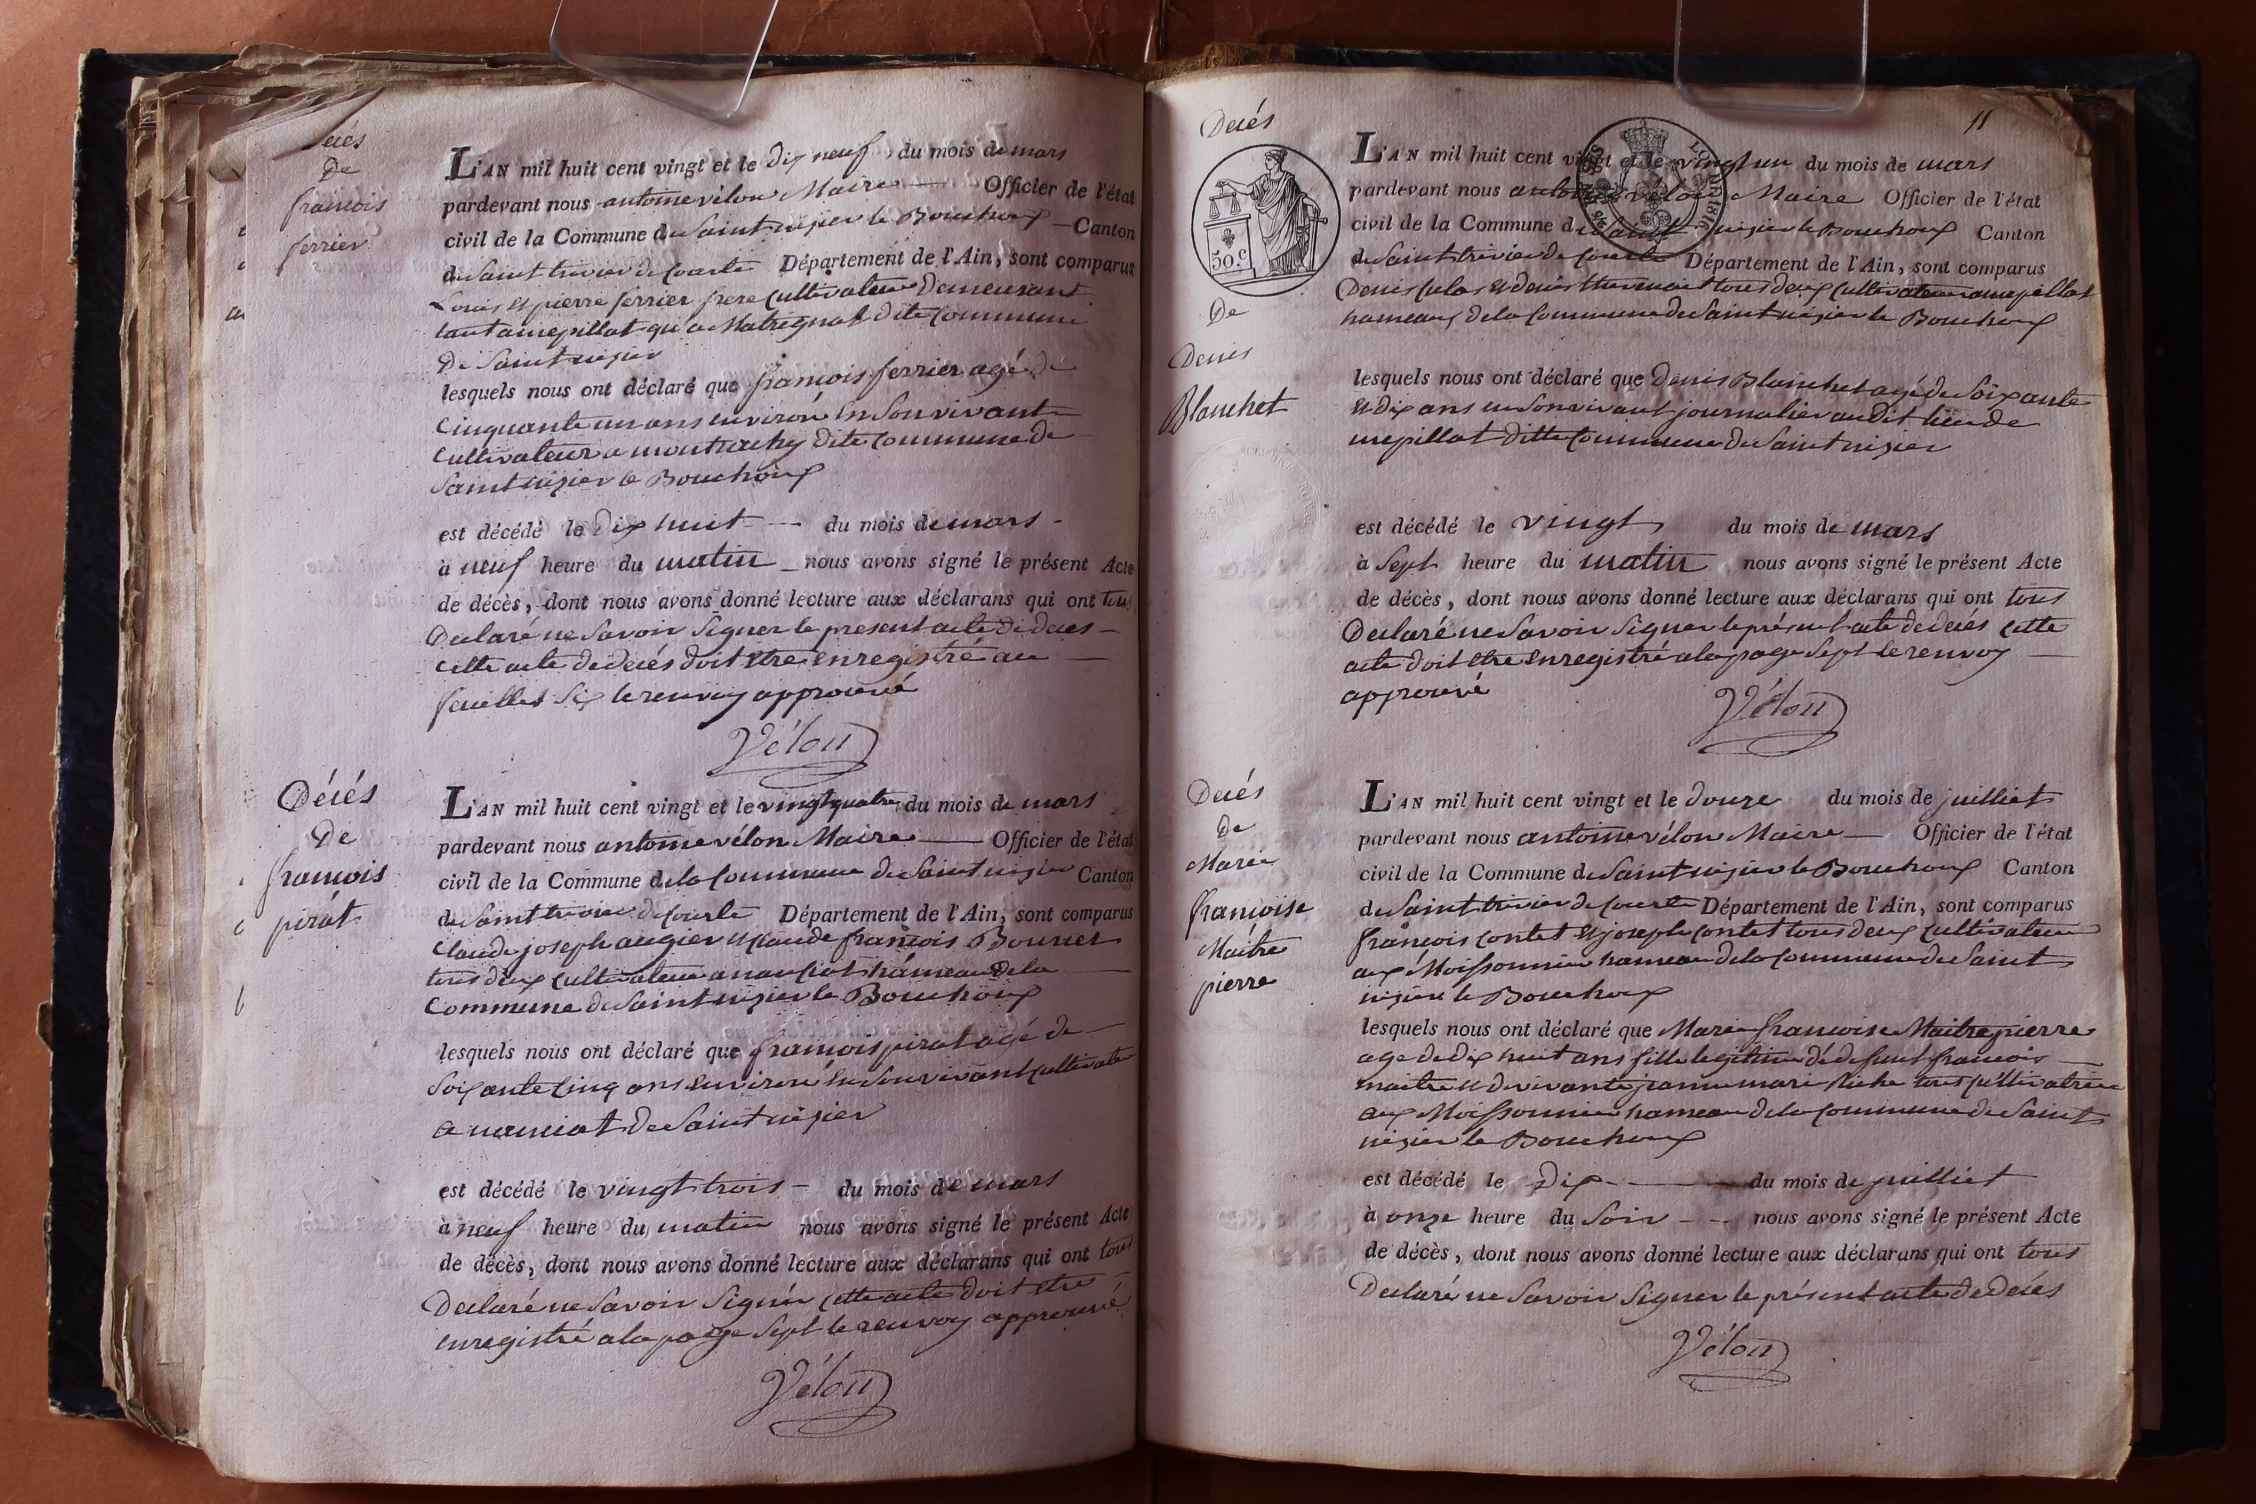 Décés
De
francois
ferrier
L'AN mil huit cent vingt et le dix neuf du mois de mars
pardevant nous antoine vélon Maire Officier de l'état
civil de la Commune de Saint nisier le Bouchoux Canton
de Saint trivier de Courte Département de l'Ain, sont comparus
Louis et pierre ferrier frere Cultivateur Demeurant
tant a mepillat qu'a Matregnat dite Commune
De Saint nisier
lesquels nous ont déclaré que francois ferrier agé de
Cinquante un ans environ En Son vivant
Cultivateur a montrachy dite Commune de
Saint nisier le Bouchoux
est décédé le Dix huit du mois de mars
à neuf heure du matin nous avons signé le présent Acte
de décès, dont nous avons donné lecture aux déclarans qui ont tous
Declaré ne Savoir Signer le present acte de deces
cette acte de decés doit etre enregistré au
feuillet Six le renvoy approuvé
Vélon
Décés
De
francois
pirat
L'AN mil huit cent vingt et le vingt quatre du mois de mars
pardevant nous antoine vélon Maire Officier de l'état
civil de la Commune de la Commune de Saint nisier Canton
de Saint trivier de Courte Département de l'Ain, sont comparus
Claude joseph augier et Claude françois Bourret
tous deux Cultivateur a nanciat hameau de la
Commune de Saint nisier le Bouchoux
lesquels nous ont déclaré que francois pirat agé de
Soixante Cinq ans environ En Son vivant Cultivateur
a nanciat de Saint nisier
est décédé le vingt trois du mois de mars
à neuf heure du matin nous avons signé le présent Acte
de décès, dont nous avons donné lecture aux déclarans qui ont tous
Declaré ne Savoir Signer cette acte doit etre
enregistré a la page Sept le renvoy approuvé
Vélon
11
Decés
50.c
De
Denis
Blanchet
L'AN mil huit cent vingt et le vingt un du mois de mars
pardevant nous antoine vélon Maire Officier de l'état
civil de la Commune de Saint nisier le Bouchoux Canton
de Saint trivier de Courte Département de l'Ain, sont comparus
Denis et denis tous deux Cultivateur a mepillat
hameaux de la Commune de Saint nisier le Bouchoux
lesquels nous ont déclaré que Denis Blanchet agé de Soixante
et dix ans en Son vivant journalier au dit lieu de
mepillat ditte Commune de Saint nisier
est décédé le vingt du mois de mars
à Sept heure du matin nous avons signé le présent Acte
de décès, dont nous avons donné lecture aux déclarans qui ont tous
Declaré ne Savoir Signer le présent acte de decés cette
acte doit etre enregistré a la page Sept le renvoy
approuvé
Vélon
Decés
De
Marie
françoise
Maitre
pierre
L'AN mil huit cent vingt et le douze du mois de juilliet
pardevant nous antoine vélon Maire Officier de l'état
civil de la Commune de Saint nisier le Bouchoux Canton
de Saint trivier de Courte Département de l'Ain, sont comparus
françois contet et joseph contet tous deux Cultivateur
aux Moissonnier hameau de la Commune de Saint
nisier le Bouchoux
lesquels nous ont déclaré que Marie francoise Maitrepierre
age de dix huit ans fille legitime de defunt francois
maitre et de vivante jeanne marie Riche tous Cultivateur
aux Moissonnier hameau de la Commune de Saint
nisier le Bouchoux
est décédé le Dix du mois de juilliet
à onze heure du Soir nous avons signé le présent Acte
de décès, dont nous avons donné lecture aux déclarans qui ont tous
Declaré ne Savoir Signer le présent acte de decés
Vélon